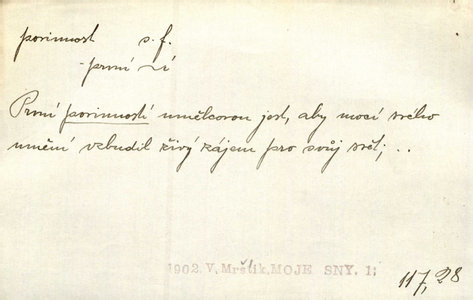 povinnost s. f.
- první ~í
První povinností umělcovou jest, aby mocí svého
umění vzbudil živý zájem pro svůj svět; . .
1902. V. Mrštík, MOJE SNY. 1;
117, 28